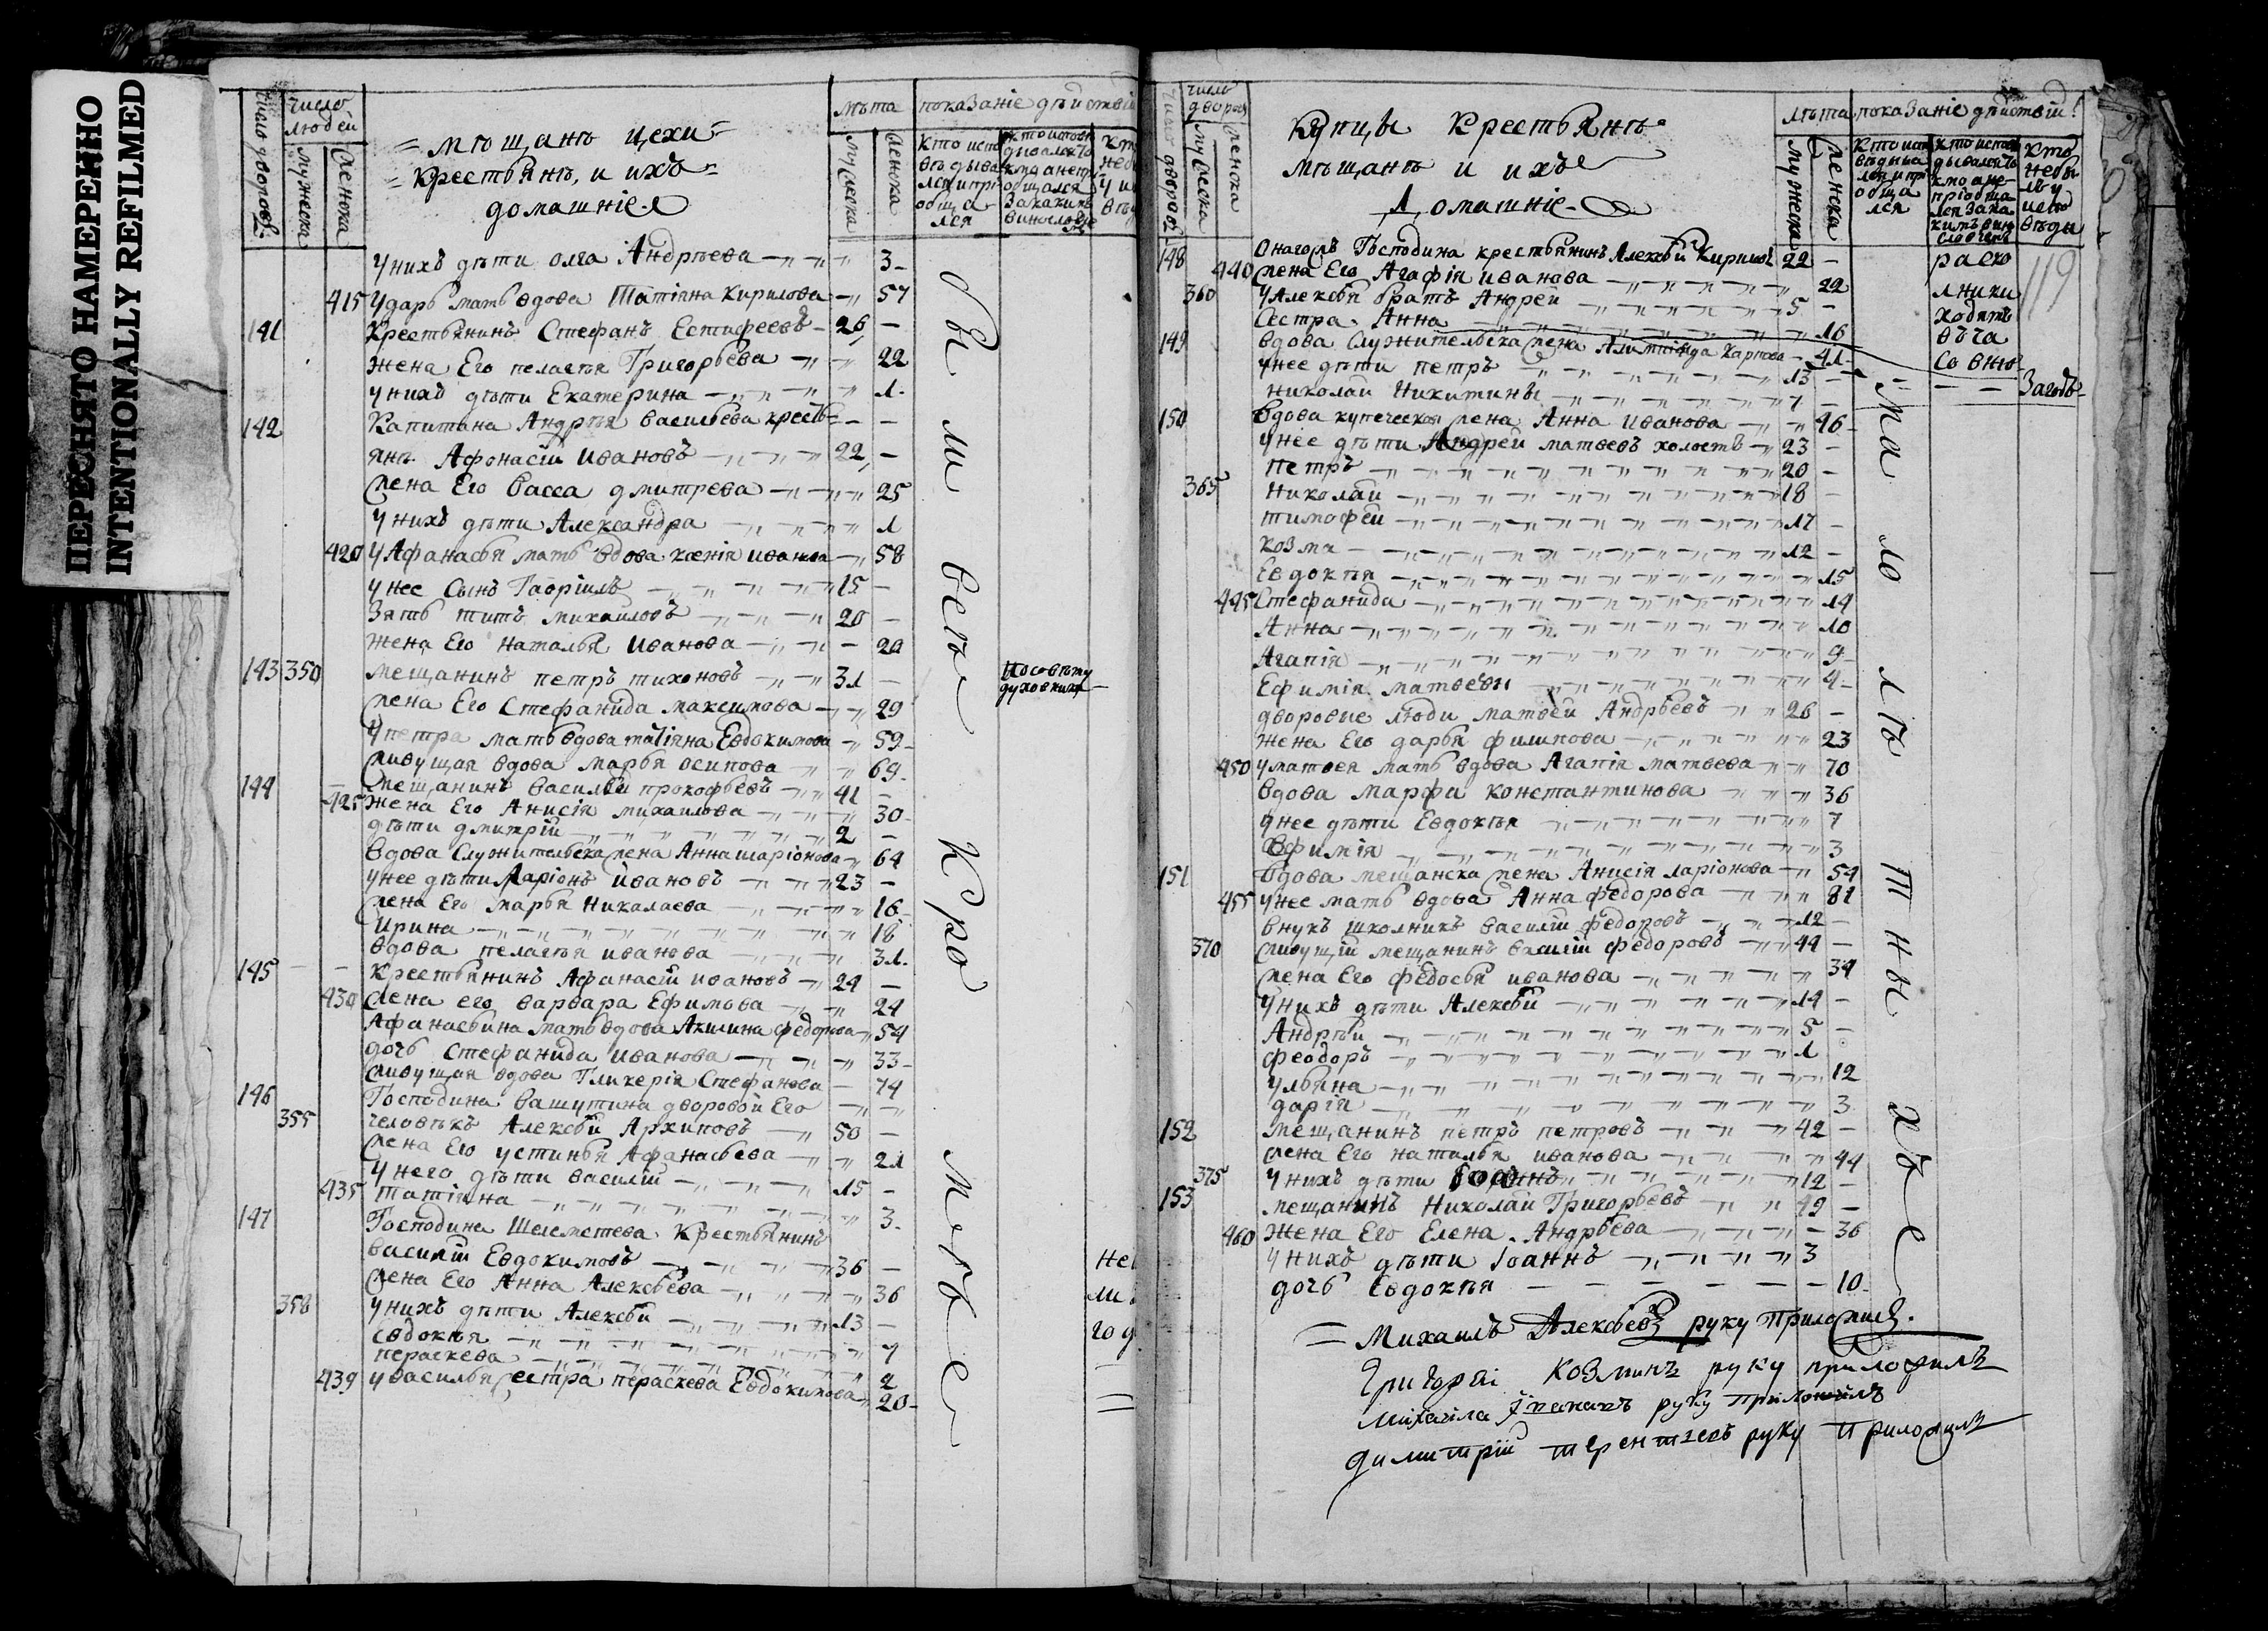 ПЕРЕСНЯТО НАМЕРЕННО
INTENTIONALLY REFILMED
число дворовъ
число людей
мужеска
женска
= мѣщанъ цехи =
= крестьянъ, и ихъ =
домашніе
лѣта
мужеска
женска
показаніе дѣйствій
кто исповѣдывался и пріобщался
У нихъ дѣти олга Андрѣева 3
415 У дарьи мать вдова Татіяна Кирилова 57
141 Крестьянинъ Стефанъ Естифеевъ 26
жена Его пелагѣя Григорьева 22
у нихъ дѣти Екатерина 1
142 Капитана Андрѣя васильева кресть
янъ Афонасіи Ивановъ 22
жена Его васса дмитрева 25
у нихъ дѣти Александра 1
420 У Афанасья мать вдова ксенія иванова 58
у нее Сынъ Гавріилъ 15
Зять титъ михаиловъ 20
жена Его наталья Иванова 20
143 350 мещанинъ петръ тихоновъ 31
По совѣту духовника
жена Его Стефанида максимова 29
У петра мать вдова татіяна Евдокимова 59
живущая вдова марья осипова 69
144 мещанинъ василѣй прокофьевъ 41
425 жена Его Анисія михаилова 30
дѣти дмитрій 2
вдова служительска жена Анна иларіонова 64
у нее дѣти Ларіонъ Ивановъ 23
жена Его марья николаева 16
Ирина 18
вдова пелагѣя иванова 31
145 Крестьянинъ Афанасіи ивановъ 24
430 жена его варвара Ефимова 24
Афанасьина мать вдова Акилина федорова 54
дочь Стефанида иванова 33
живущая вдова Гликерія Стефанова 74
146 Господина вашутина дворовой Его
355 человѣкъ Алексѣй Архиповъ 50
жена Его устинья Афанасьева 21
У него дѣти василій 15
435 татіяна 3
147 Господина Шереметева Крестьянинъ
василій Евдокимовъ 36
жена Его Анна Алексѣева 36
358 у нихъ дѣти Алексѣй 13
Евдокѣя 7
параскева 2
439 у василья сестра параскева Евдокимова 20
были всѣ кроме
Купцы Крестьянъ
мѣщанъ и ихъ
Домашніе
число дворовъ
мужеска
женска
лѣта
мужеска
женска
показаніе дѣйствій
119
148 Онагожъ Господина крестьянинъ Алексѣй Кириловъ 22
440 жена Его Агафія иванова 22
360 У Алексѣя братъ Андрей 5
Сестра Анна 16
раско
лники
ходятъ
въ ча
совню
149 вдова Служительска жена Карпова 41
у нее дѣти петръ 13
николай Никитины 7
150 вдова купеческая жена Анна Иванова 46
у нее дѣти Андрей матвеевъ холостъ 23
петръ 20
365 Николай 18
тимофей 17
козма 12
Евдокѣя 15
445 Стефанида 14
Анна 10
Агапія 9
Ефимія матвѣевы 4
дворовые люди матвѣй Андрѣевъ 26
жена Его дарья филипова 23
450 у матвея мать вдова Агапія матвеева 70
вдова марфа константинова 36
у нее дѣти Евдокѣя 7
Ефимія 3
151 вдова мещанска жена Анисія ларіонова 54
455 у нее мать вдова Анна федорова 81
внукъ школникъ василій федоровъ 12
370 живущій мещанинъ василій федоровъ 44
жена Его федосья иванова 34
у нихъ дѣти Алексѣй 14
Андрѣй 5
феодоръ 1
ульяна 12
дарія 3
152 мещанинъ петръ петровъ 42
жена Его наталья иванова 44
375 у нихъ дѣти Іоаннъ 12
153 мещанинъ Николай Григорьевъ 49
460 жена Его Елена Андрѣева 36
у нихъ дѣти Іоаннъ 3
дочь Евдокѣя 10
малолѣтныхъ
= Михаилъ Алексѣевъ руку приложилъ.
Григорей Козминъ руку приложилъ
Михаила руку приложилъ
димитрій терентьевъ руку приложилъ